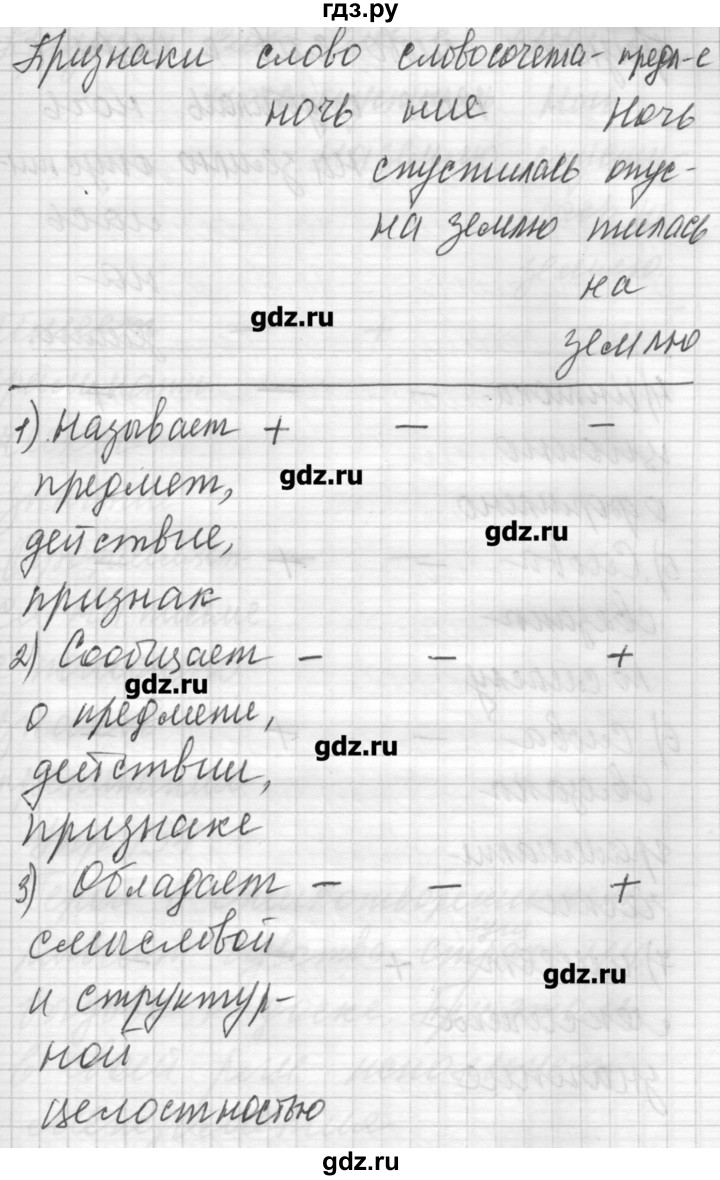 гдз.ру
Признаки слово словосочета- предл-е
ночь ние Ночь
спустилась опус-
на землю тилась
на
gdz.ru
землю
1) Называет + — —
gdz.ru
предмет,
gdz.ru
действие,
признак
2) Сообщает — — +
gdz.ru
о предмете,
gdz.ru
действии,
признаке
3) Обладает — — +
смысловой
gdz.ru
и структур-
ной
целостностью
gdz.ru